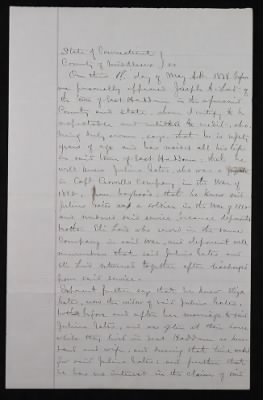 State of Connecticut }
County of Middlesex } ss
On this 1st day of May A.D. 1878, before
me personally appeared Joseph A. Lord of
the town of East Haddam in the aforesaid
County and State, whom I certify to be
respectable and entitled to credit, who
being duly sworn, says that he is
years of age and has resided all his life
in said town of East Haddam, that he
well knew Julius Cates, who was a
in Capt Crowell's Company in the War of
1812, from boyhood that he knew said
Julius Cates was a soldier in the War of 1812
and rendered said service, because deponent's
brother Eli Lord who served in the same
Company in said War, and deponent well
remembers that said Julius Cates and
Eli Lord returned together after discharge
from said service.
Deponent further says that he knew
Cates, now the widow of said Julius Cates,
both before and after her marriage to said
Julius Cates, and was often at their house
while they lived in East Haddam as hus-
band and wife, and
for said Julius Cates, and further that
he has no interest in the claim of said